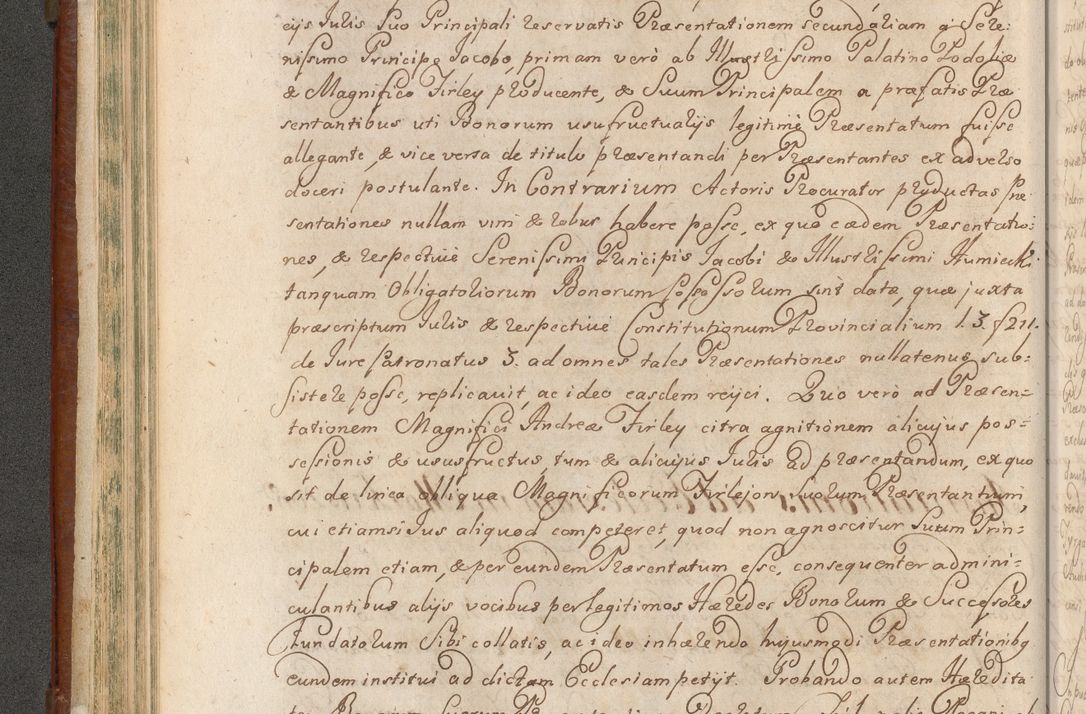 eijs Iulis suo Principali reservatis Præsentationem secundariam a Sere:
nissimo Principe Jacobo, primam verò ab Illustrissimo Palatino Podoliæ
& Magnifico Firley producente, & Suum Principalem a præfatis Præ
sentantibus uti Bonorum usufructuarijs legitimè Præsentatum fuisse
allegante, & vice versa de titulo præsentandi per Præsentantes ex adverso
doceri postulante. In Contrarium Actoris Procurator productas Præ
sentationes nullam vim & robur habere posse, ex quò eædem Præsentatio:
nes, & respectivè Serenissimi Principis Jacobi & Illustrissimi Humiecki
tanquam Obligatoriorum Bonorum Possessorum sint datæ, quæ juxta
præscriptum Iuris & respectivè Constitutionum Provincialium l. 3. f 211.
de Iure Patronatus 3. ad omnes tales Præsentationes nullatenus sub:
sistere posse, replicavit, ac ideo easdem reijci. Quo verò ad Præsen=
tationem Magnifici Andreæ Firley citra agnitionem alicujus pos=
sessionis & ususfructus, tum & alicujus Iuris ad præsentandum, ex quo
sit de linea obliqua Magnificorum Firlejow suorum Præsentantium,
cui etiamsi Ius aliquod competeret, quod non agnoscitur suum Prin=
cipalem etiam, & per eundem Præsentatum esse, consequenter admini=
culantibus alijs vocibus per legitimos Hæredes Bonorum & Successores
Fundatorum Sibi collatis, ac ideo inhærendo hujusmodi Præsentationibq
eundem institui ad dictam Ecclesiam petijt. Probando autem Hæredita